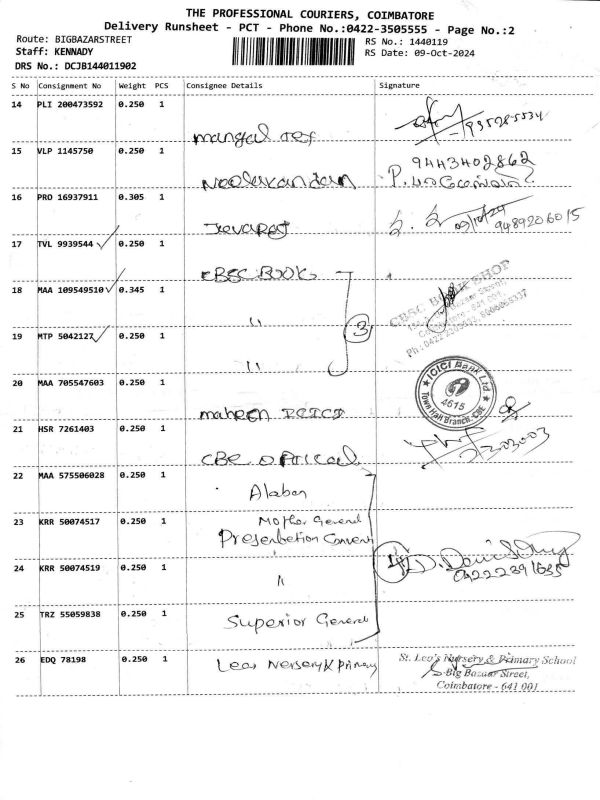 THE PROFESSIONAL COURIERS, COIMBATORE
Delivery Runsheet - PCT - Phone No.:0422-3505555 - Page No.:2
Route: BIGBAZARSTREET
RS No.: 1440119
Staff: KENNADY
RS Date: 09-Oct-2024
DRS No.: DCJB144011902
S No Consignment No Weight PCS Consignee Details Signature
14 PLI 200473592 0.250 1 mangal Tex
15 VLP 1145750 0.250 1 Neelakandan 9443402862
16 PRO 16937911 0.305 1 Jeevaraj 09/10/24 9489206015
17 TVL 9939544 0.250 1 CBSC BOOK
18 MAA 109549510 0.345 1 " 3 CBSC BOOK SHOP
19 MTP 5042127 0.250 1 "
20 MAA 705547603 0.250 1 maheen ICICI ICICI Bank Ltd. 4615 Town Hall Branch-CBE
21 HSR 7261403 0.250 1 CBE optical
22 MAA 575506028 0.250 1 Alaban
23 KRR 50074517 0.250 1 Mother General
Presentation Convent
24 KRR 50074519 0.250 1 "
25 TRZ 55059838 0.250 1 Superior General
26 EDQ 78198 0.250 1 Leos Nersery & primary St. Leo's Nursery & Primary School
Big Bazaar Street,
Coimbatore - 641 001